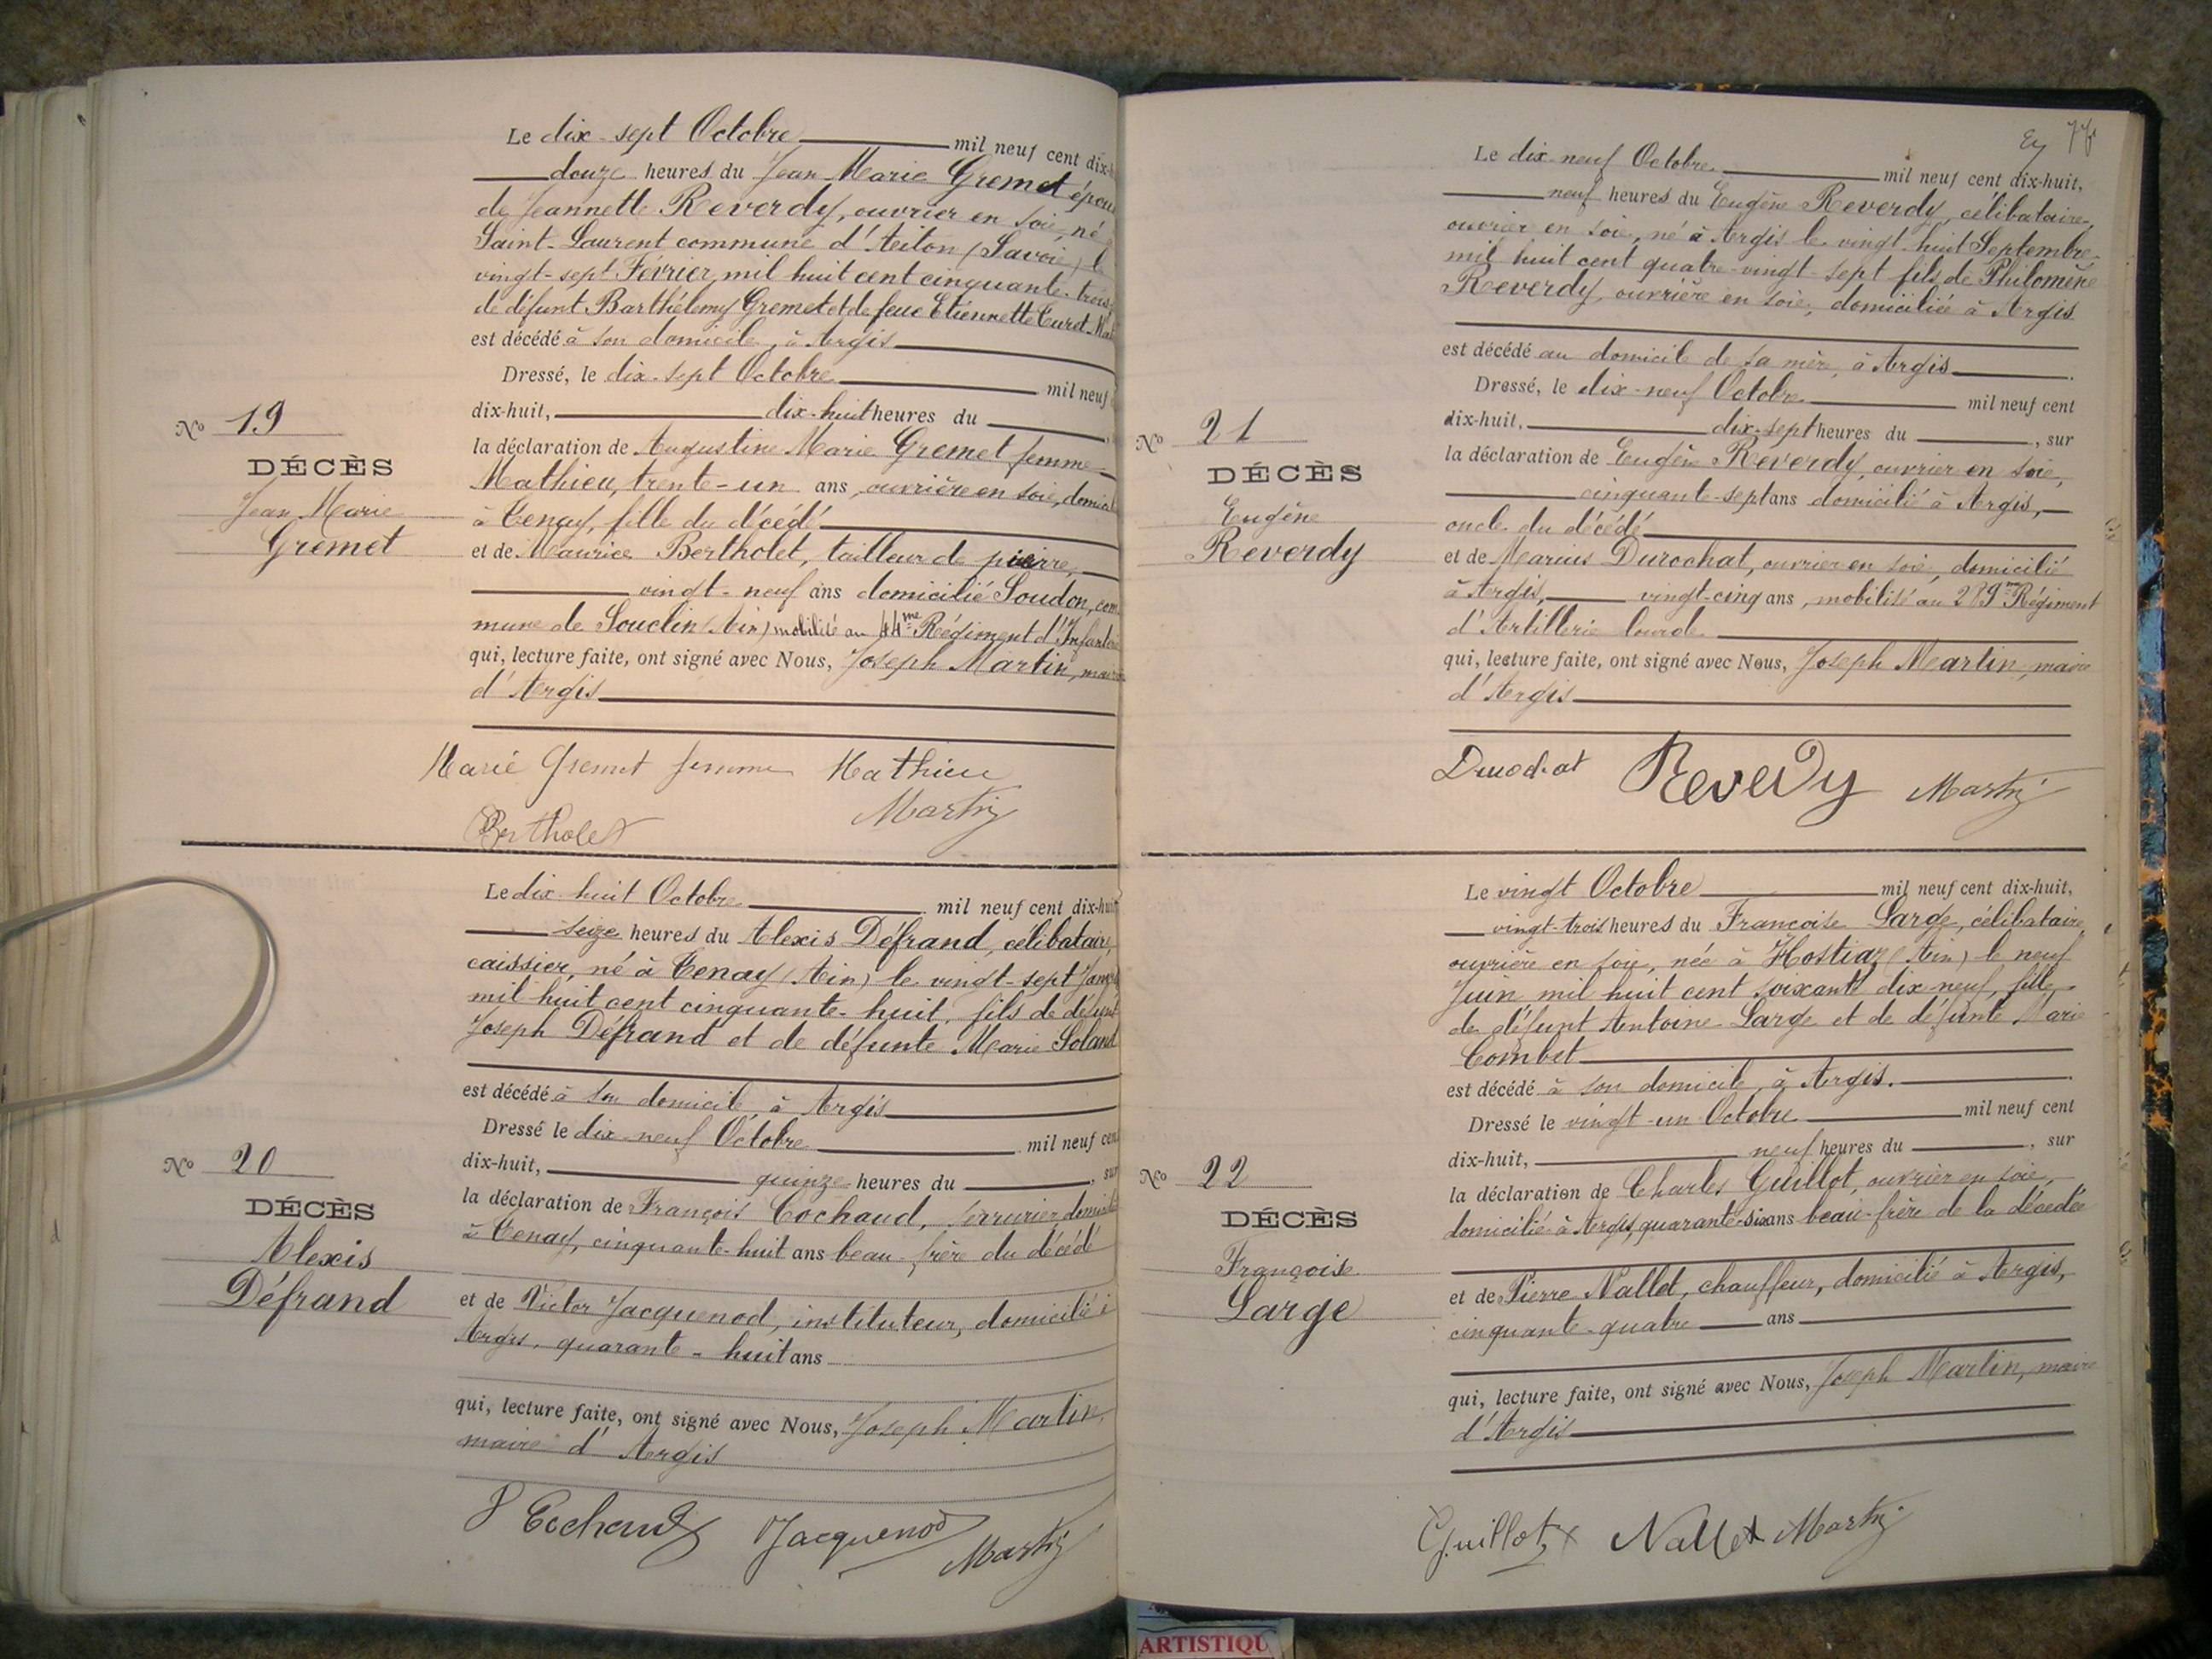 Le dix-sept Octobre mil neuf cent dix-h
douze heures du Jean Marie Gremet épou
de Jeannette Reverdy, ouvrier en soie, né
Saint-Laurent commune d'Aiton (Savoie) le
vingt-sept Février mil huit cent cinquante-trois
de défunt Barthélemy Gremet et de feue Etiennette Curet
est décédé à son domicile, à Argis
Dressé, le dix-sept Octobre mil neuf
dix-huit, dix-huit heures du
la déclaration de Augustine Marie Gremet femme
Mathieu, trente-un ans, ouvrière en soie, domici
à Tenay, fille du décédé
et de Maurice Bertholet, tailleur de pierre,
vingt-neuf ans domicilié Soudon, com
mune de Souclin (Ain) mobilisé au 44me Régiment d'Infanterie
qui, lecture faite, ont signé avec Nous, Joseph Martin, maire
d'Argis
No 19
DÉCÈS
Jean Marie
Gremet
Marie Gremet femme Mathieu
Martin
Bertholet
Le dix-huit Octobre mil neuf cent dix-huit
seize heures du Alexis Défrand, célibataire,
caissier, né à Tenay (Ain) le vingt-sept Janv
mil huit cent cinquante-huit, fils de défunt
Joseph Défrand et de défunte Marie Soland
est décédé à son domicile, à Argis
Dressé le dix-neuf Octobre mil neuf cent
dix-huit, quinze heures du , sur
la déclaration de François Cochaud, serrurier domicilié
à Tenay, cinquante-huit ans beau-frère du décédé
et de Victor Jacquenod, instituteur, domicilié à
Argis, quarante-huit ans
qui, lecture faite, ont signé avec Nous, Joseph Martin,
maire d'Argis
No 20
DÉCÈS
Alexis
Défrand
Cochaud Jacquenod Martin
77
Le dix-neuf Octobre mil neuf cent dix-huit,
neuf heures du Eugène Reverdy, célibataire,
ouvrier en soie, né à Argis le vingt-huit Septembre
mil huit cent quatre-vingt-sept fils de Philomène
Reverdy, ouvrière en soie, domiciliée à Argis
est décédé au domicile de sa mère, à Argis
Dressé, le dix-neuf Octobre mil neuf cent
dix-huit, dix-sept heures du , sur
la déclaration de Eugène Reverdy, ouvrier en soie,
cinquante-sept ans domicilié à Argis,
oncle du décédé
et de Marius Durochat, ouvrier en soie, domicilié
à Argis, vingt-cinq ans, mobilisé au 289me Régiment
d'Artillerie lourde
qui, lecture faite, ont signé avec Nous, Joseph Martin, maire
d'Argis
No 21
DÉCÈS
Eugène
Reverdy
Durochat Reverdy Martin
Le vingt Octobre mil neuf cent dix-huit,
vingt-trois heures du Françoise Large, célibataire,
ouvrière en soie, née à Hostiaz (Ain) le neuf
Juin mil huit cent soixante dix-neuf, fille
de défunt Antoine Large et de défunte Marie
Combet
est décédé à son domicile, à Argis.
Dressé le vingt-un Octobre mil neuf cent
dix-huit, neuf heures du , sur
la déclaration de Charles Guillot, ouvrier en soie,
domicilié à Argis, quarante-six ans beau-frère de la décédée
et de Pierre Nallet, chauffeur, domicilié à Argis,
cinquante-quatre ans
qui, lecture faite, ont signé avec Nous, Joseph Martin, maire
d'Argis
No 22
DÉCÈS
Françoise
Large
Guillot Nallet Martin
ARTISTIQU